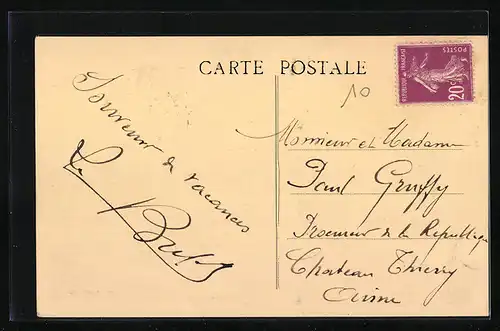 CARTE POSTALE
REPUBLIQUE FRANÇAISE
POSTES
20c
10
Souvenir de vacances
Monsieur et Madame
Paul Gruffy
Procureur de la République
Chateau Thierry
Aisne